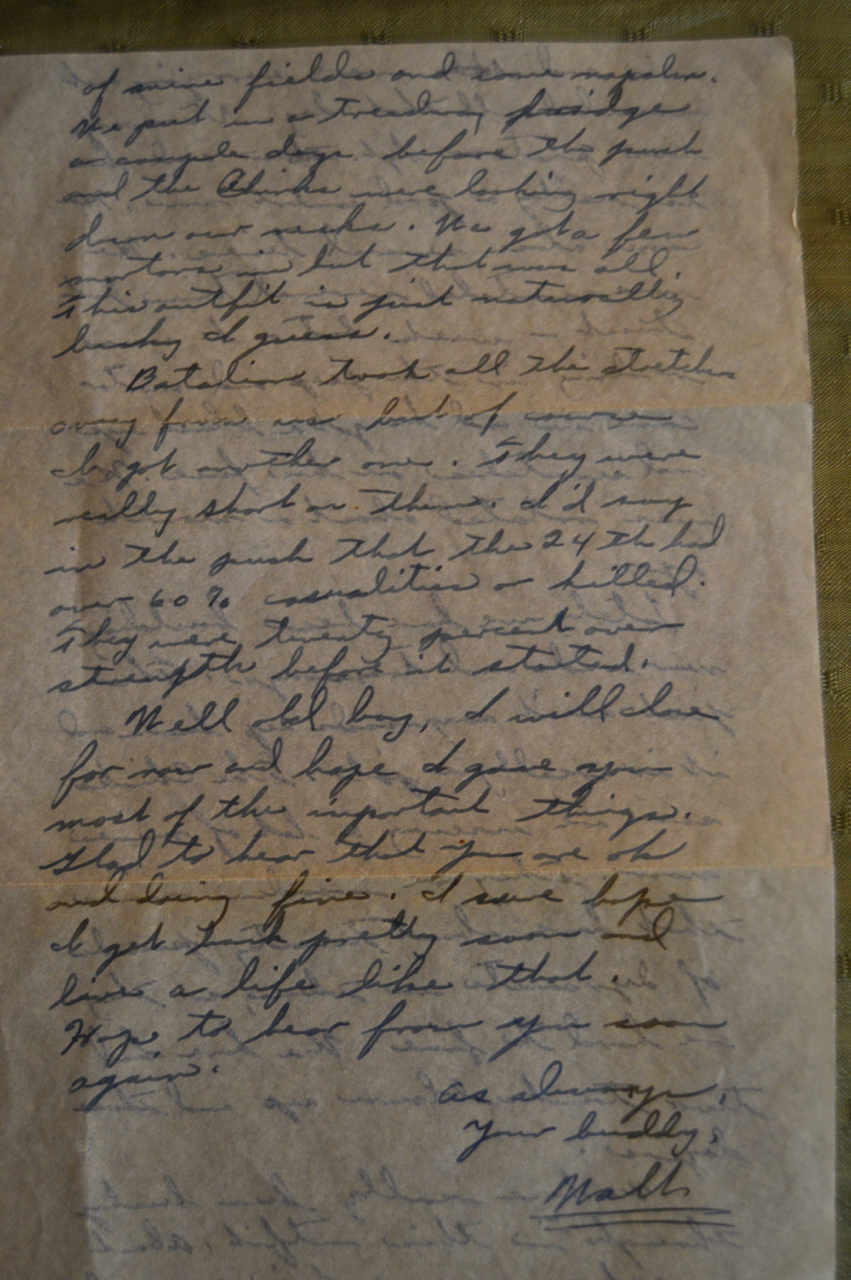 of mine fields and some napalm.
We put in a treadway bridge
a couple days before the push
and the Chinks were looking right
down our necks. We got a few
mortars in but that was all.
This outfit is just naturally
lucky I guess.
Batalion took all the stretches
away from us but of course
I got another one. They were
really short on them. I'd say
in the push that the 24th had
over 60% casualities or killed.
They were twenty percent over
strength before it started.
Well old boy, I will close
for now and hope I gave you
most of the important things.
Glad to hear that you are ok
and doing fine. I sure hope
I get back pretty soon and
live a life like that.
Hope to hear from you soon
again.
as always,
Your buddy,
Walt